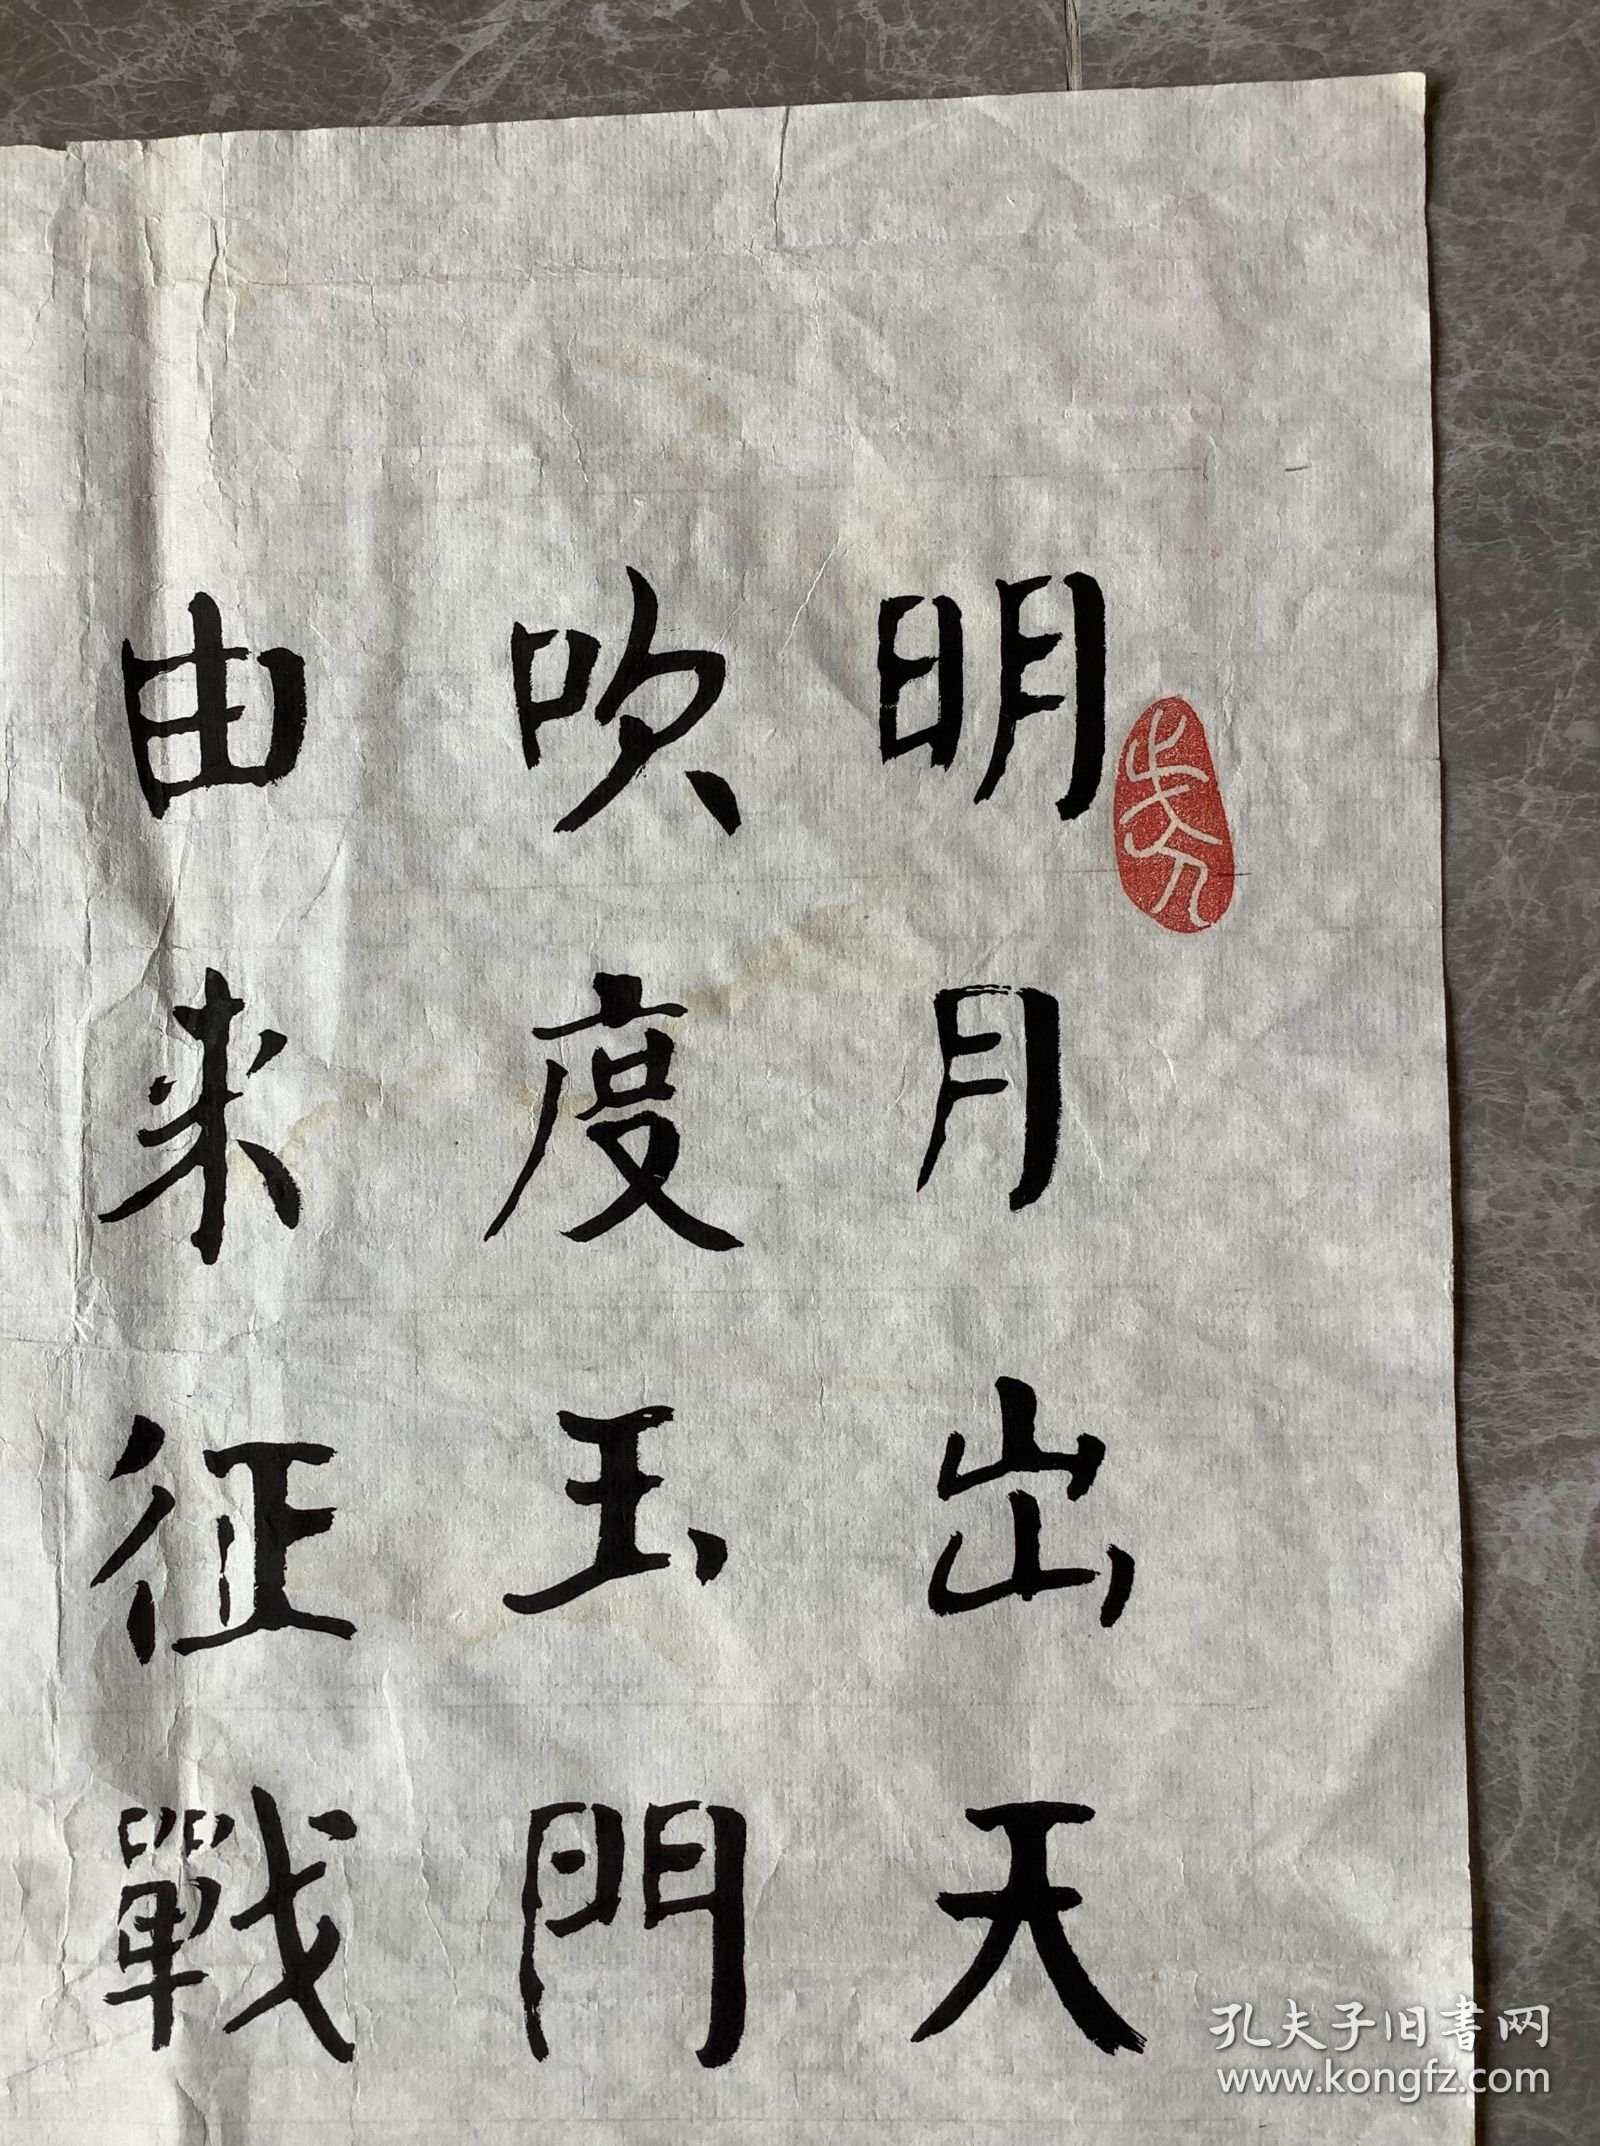 明月出天
吹度玉門
由来征戰
孔夫子旧書网
www.kongfz.com